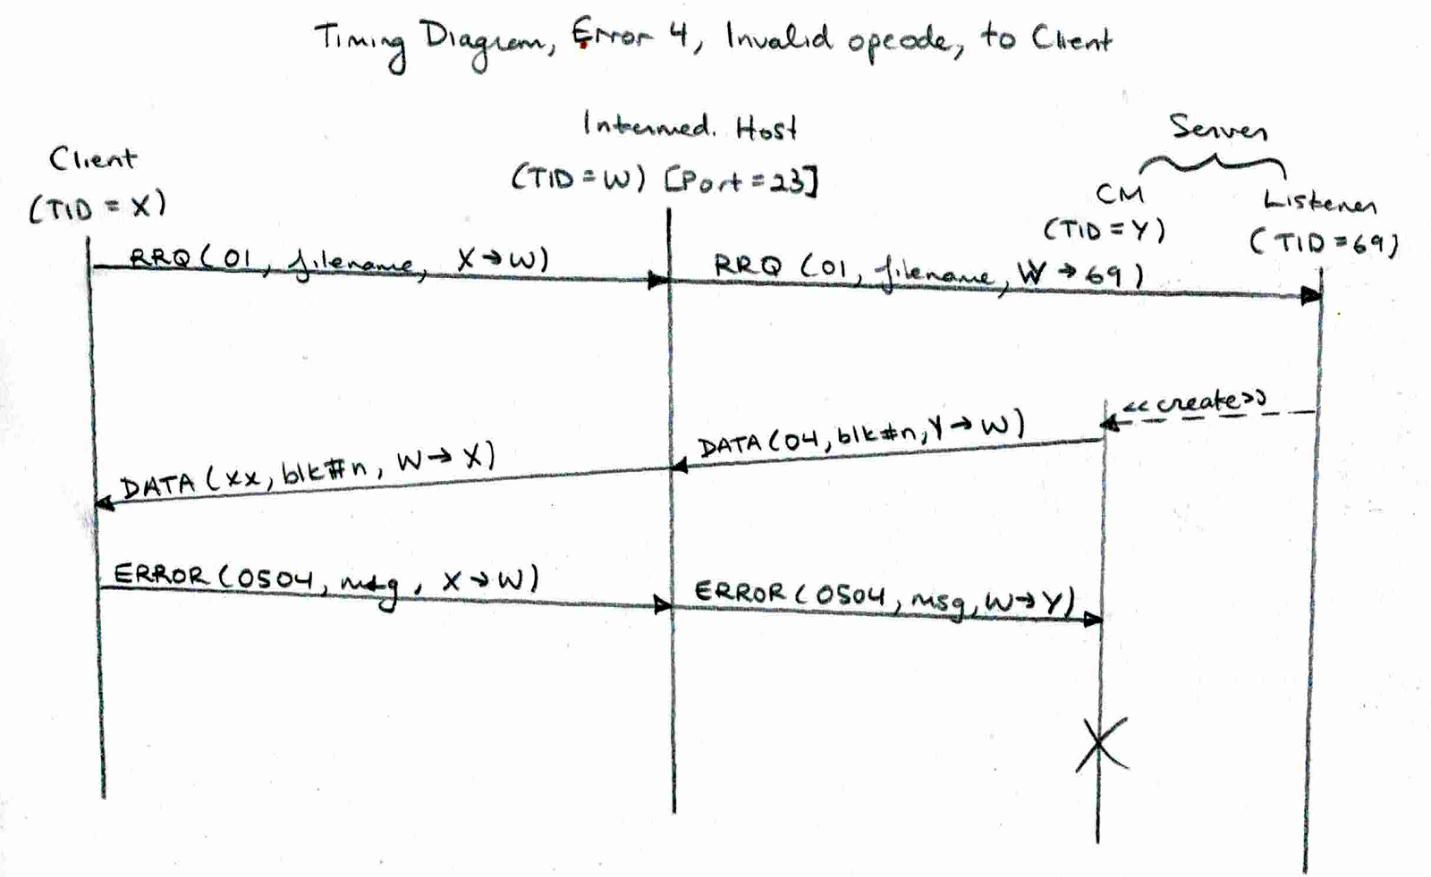 Timing Diagram, Error 4, Invalid opcode, to Client
Intermed. Host
Server
Client
(TID = W) [Port = 23]
CM
Listener
(TID = X)
(TID = Y)
(TID = 69)
RRQ (01, filename, X → W)
RRQ (01, filename, W → 69)
<<create>>
DATA (04, blk#n, Y → W)
DATA (xx, blk#n, W → X)
ERROR (0504, msg, X → W)
ERROR (0504, msg, W → Y)